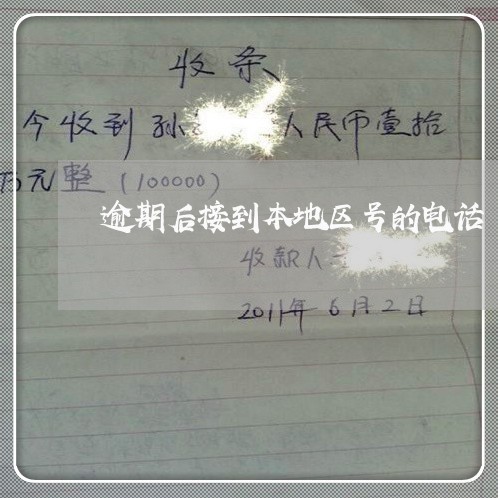 收条
今收到孙 人民币壹拾
万元整(100000)
逾期后接到本地区号的电话
收款人
2011年6月2日